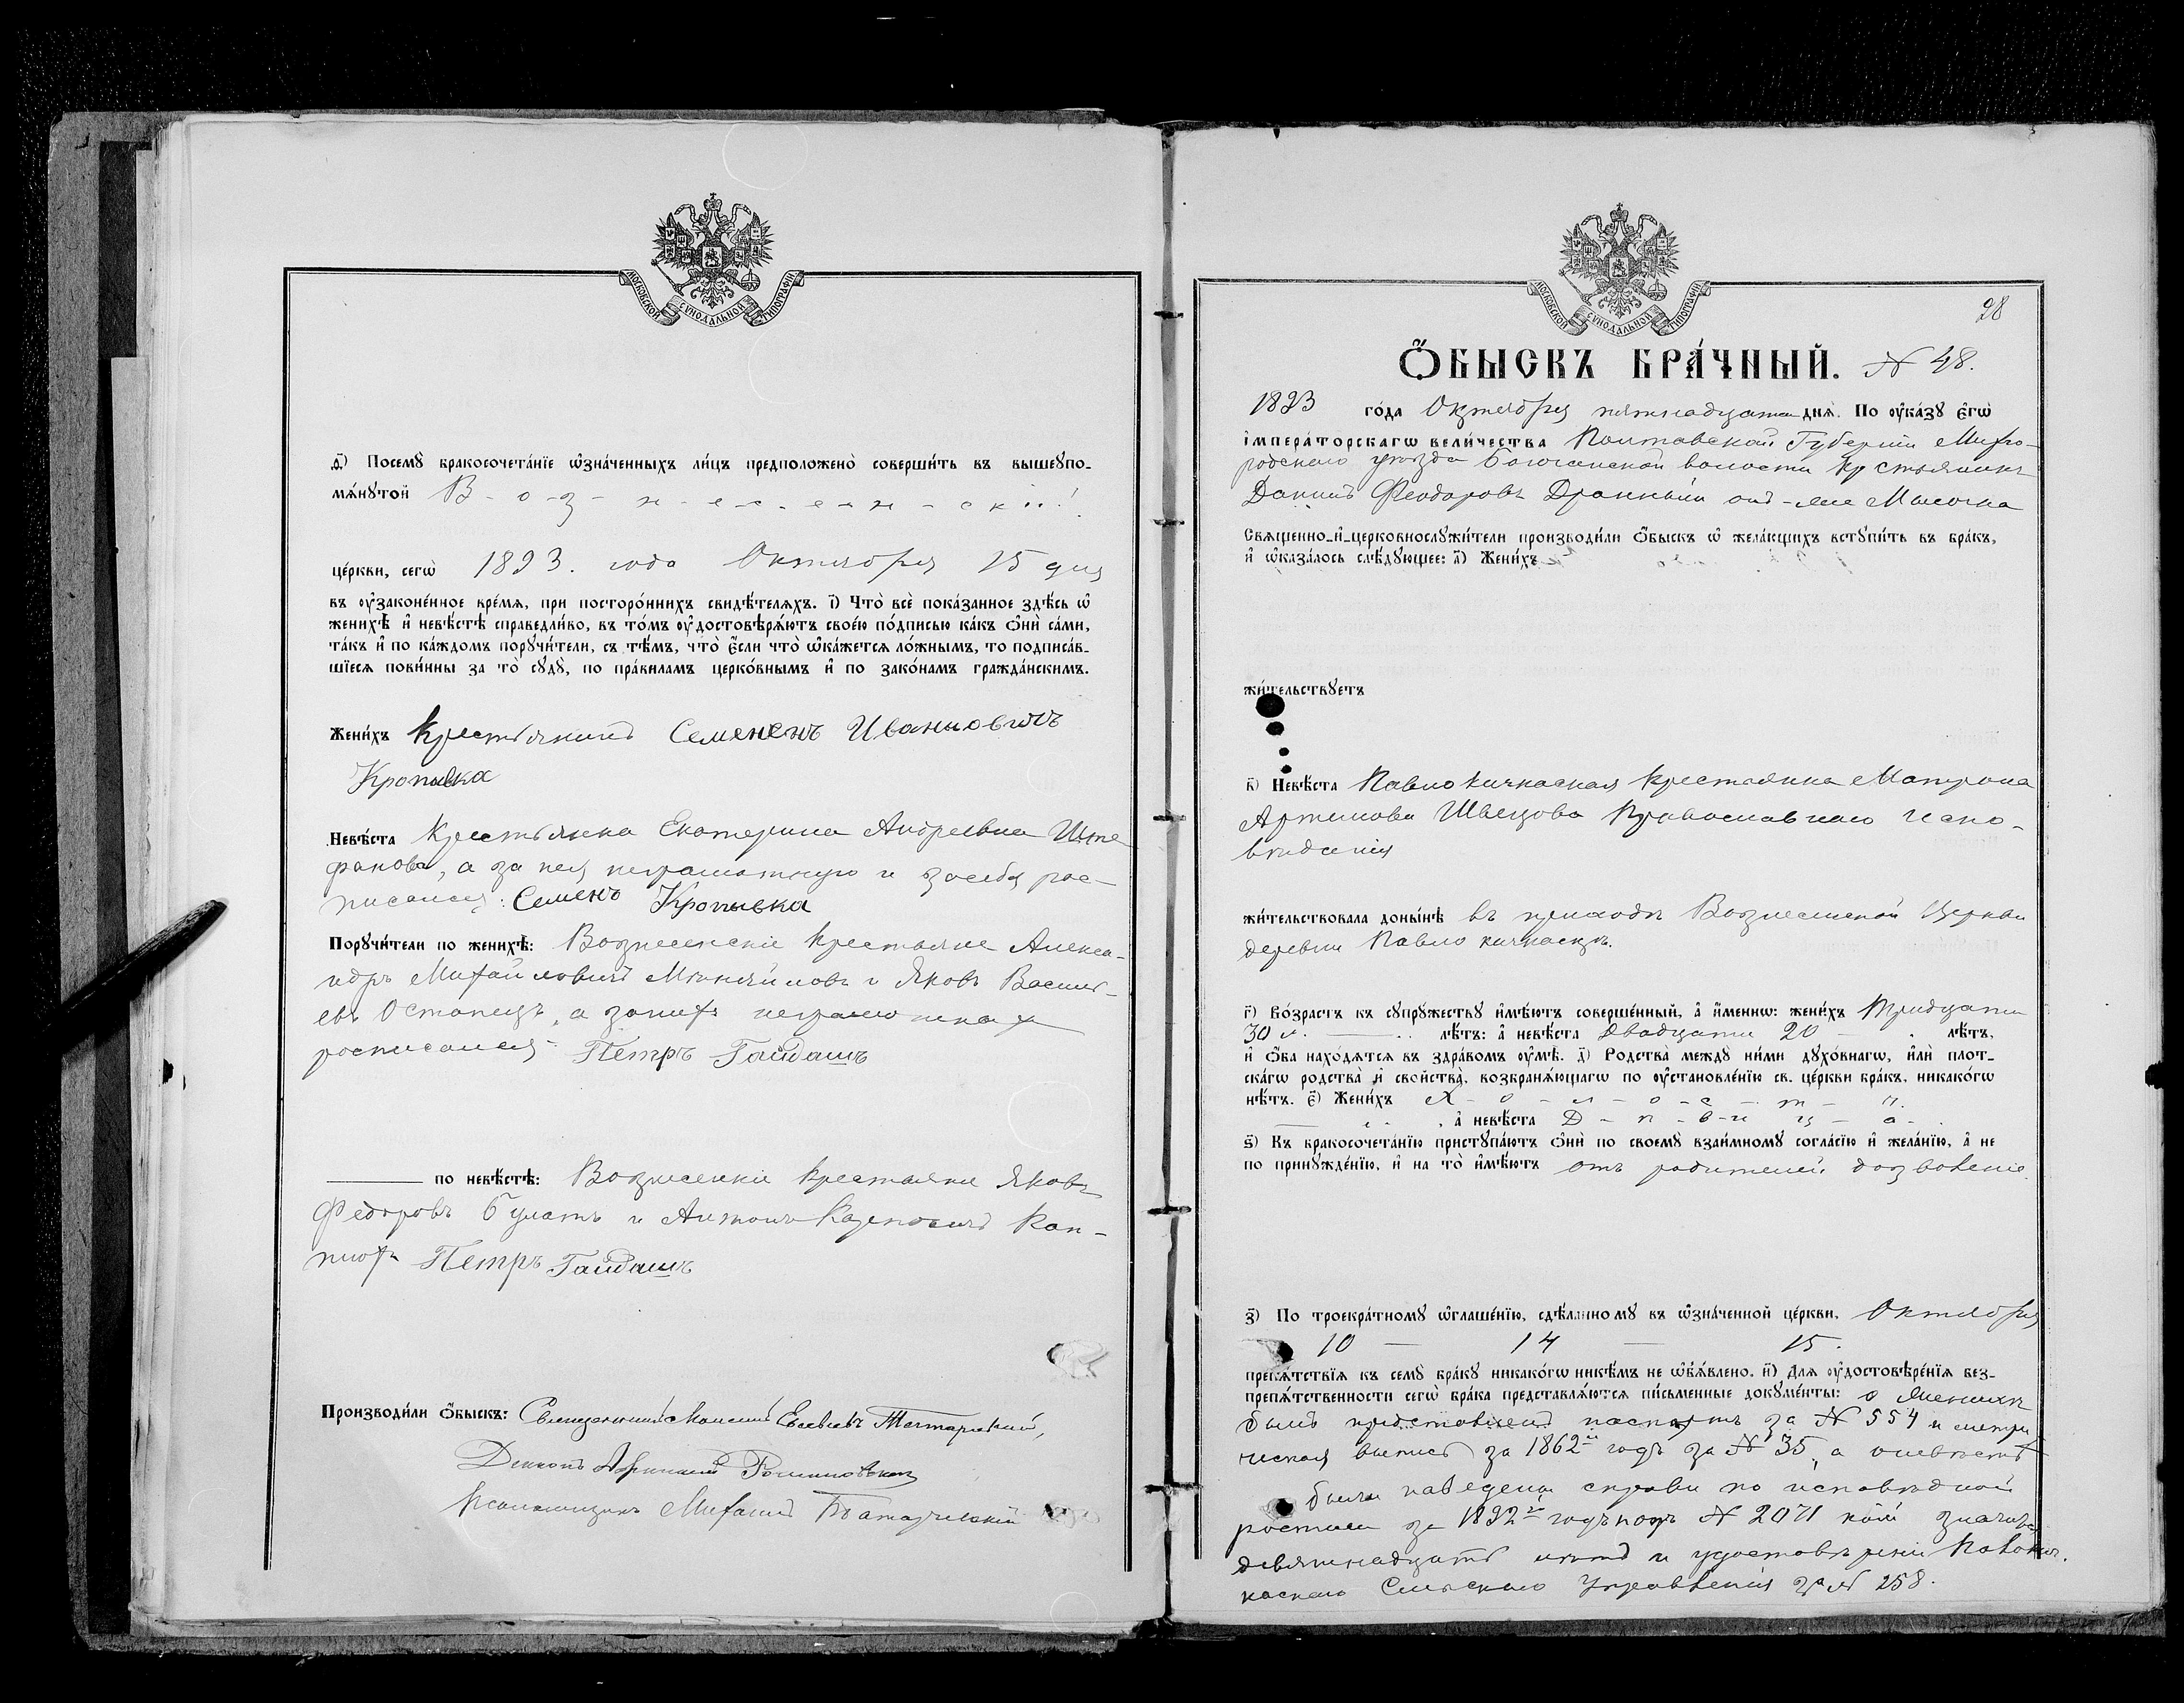 МОСКОВСКОЙ СѴНОДАЛЬНОЙ ТИПОГРАФІИ
Посемꙋ̀ бракосочета́нїе ѡ҆зна́ченныхъ ли́цъ предположено̀ соверши́ть въ вышеупо-
мѧ́нꙋтой В-о-з-н-е-с-е-н-с к і й
це́ркви, сегѡ̀ 1893. года Октября 15 дня
въ ᲂу҆законе́нное вре́мѧ, при посторо́ннихъ свидѣ́телѧхъ. і҃) Что̀ всѐ пока́занное здѣ́сь ѡ҆
женихѣ̀ и҆ невѣ́стѣ справедли́во, въ то́мъ ᲂу҆достовѣрѧ́ютъ свое́ю по́дписью ка́къ ѻ҆нѝ са́ми,
та́къ и҆ по ка́ждомъ порꙋчи́тели, съ тѣ́мъ, что̀ є҆́сли что̀ ѡ҆ка́жетсѧ ло́жнымъ, то подписа́в-
шїесѧ пови́нны за то̀ сꙋдꙋ̀, по пра́виламъ церко́внымъ и҆ по зако́намъ гражда́нскимъ.
Жени́хъ Крестьянинъ Семененъ Ивановичъ
Кропывка
Невѣ́ста Крестьянка Екатерина Андреевна Ште
фанова, а за нея неграмотную и за себя рос-
писался: Семенъ Кропывка
Порꙋчи́тели по женихѣ̀: Вознесенскіе крестьяне Алекса-
ндръ Михайловичъ и Яковъ Василь-
евъ Остапецъ, а за нихъ неграмотныхъ
росписался Петръ Гайдашъ
по невѣ́стѣ: Вознесенскіе крестьяне Яковъ
Федоровъ Булатъ и Антонъ
Петръ Гайдашъ
Производи́ли ѻ҆́быскъ: Священникъ
Діаконъ
Псаломщикъ Михаилъ
МОСКОВСКОЙ СѴНОДАЛЬНОЙ ТИПОГРАФІИ
28
Ѻ҆́БЫСКЪ БРА́ЧНЫЙ. N 48.
1893 го́да Октября пятнадцата днѧ̀. По ᲂу҆ка́зꙋ є҆гѡ̀
і҆мпера́торскагѡ вели́чества Полтавской Губерніи Мирго-
родскаго уѣзда волости крстьянинъ
Даніилъ Феодоровъ
Свѧщенно-и҆-церковнослꙋжи́тели производи́ли ѻ҆́быскъ ѡ҆ жела́ющихъ встꙋпи́ть въ бра́къ,
и҆ ѡ҆каза́лось слѣ́дꙋющее: а҃) Жени́хъ
жи́тельствꙋетъ
в҃) Невѣ́ста Павлокичкаская крестьянка Матрона
Артемова Швецова Православнаго испо-
вѣданія
жи́тельствовала доны́нѣ въ приходѣ Вознесенской Церкви
деревни Павло кичкасъ.
г҃) Во́зрастъ къ сꙋпрꙋ́жествꙋ и҆мѣ́ютъ соверше́нный, а҆ и҆́менно: жени́хъ тридцати
30 л. лѣ́тъ: а҆ невѣ́ста двадцати 20 лѣ́тъ,
и҆ ѻ҆́ба нахо́дѧтсѧ въ здра́вомъ ᲂу҆мѣ̀. д҃) Родства̀ междꙋ̀ ни́ми дꙋхо́внагѡ, и҆лѝ плот-
ска́гѡ родства̀ и҆ свойства̀, возбранѧ́ющагѡ по ᲂу҆становле́нїю св. це́ркви бра́къ, никако́гѡ
нѣ́тъ. є҃) Жени́хъ Х-о-л-о-с-т-ъ.
а҆ невѣ́ста Д-ѣ-в-и-ц-а.
ѕ҃) Къ бракосочета́нїю пристꙋпа́ютъ ѻ҆нѝ по своемꙋ̀ взаи́мномꙋ согла́сїю и҆ жела́нїю, а҆ не
по принꙋжде́нїю, и҆ на то̀ и҆мѣ́ютъ отъ родителей дозволеніе
з҃) По троекра́тномꙋ ѡ҆глаше́нїю, сдѣ́ланномꙋ въ ѡ҆зна́ченной це́ркви, Октября
10 — 14 — 15.
препѧ́тствїѧ къ семꙋ̀ бра́кꙋ никако́гѡ никѣ́мъ не ѡ҆б̾ѧ́влено. и҃) Длѧ ᲂу҆достовѣре́нїѧ без-
препѧ́тственности сегѡ̀ бра́ка представлѧ́ютсѧ пи́сьменные докꙋме́нты: о женихѣ
былъ представленъ паспортъ за N 554 и метри
ческая выпись за 1862й годъ за N 35, а о невѣстѣ
были наведены справки по исповѣдной
росписи за 1892й годъ подъ N 2071 кой значится
девятнадцать лѣтъ и удостовѣреніе Павлокич.
каскаго Сельскаго Управленія за N 258.